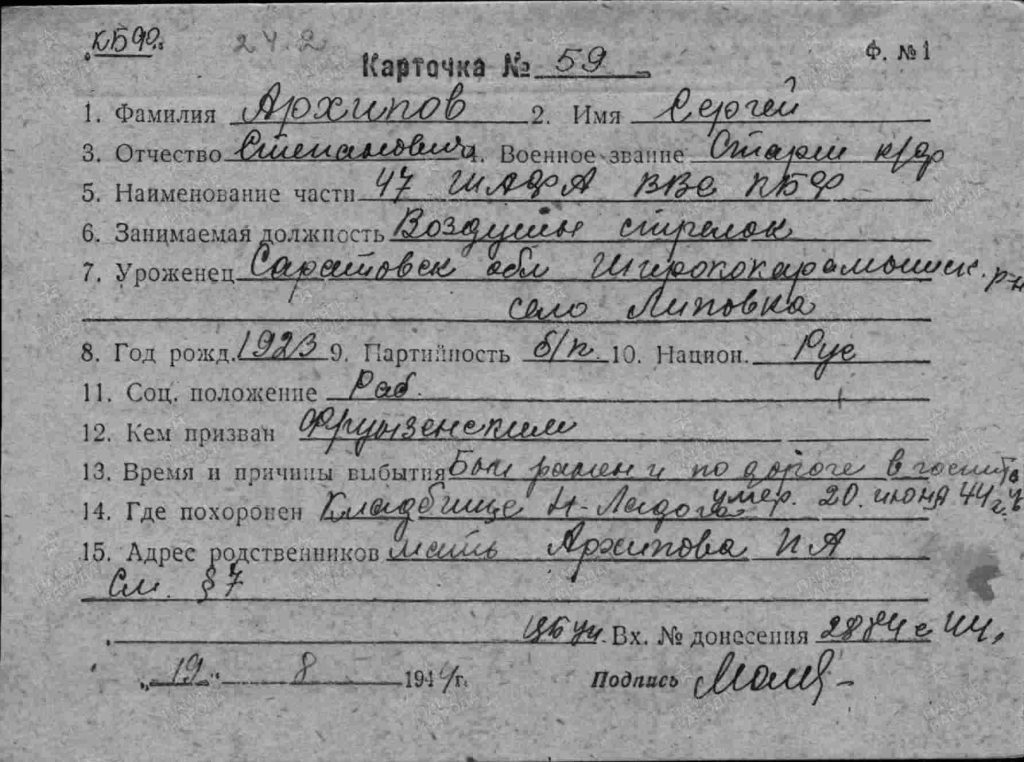 КБФ. 24.2
Карточка № 59 Ф. №1
1. Фамилия Архипов 2. Имя Сергей
3. Отчество Степанович 4. Военное звание Старш к/ф
5. Наименование части 47 ШАФА ВВС КБФ
6. Занимаемая должность Воздушн стрелок
7. Уроженец Саратовск обл Ширококарамышск. р-н
село Липовка
8. Год рожд. 1923 9. Партийность б/п. 10. Национ. Рус
11. Соц. положение Раб.
12. Кем призван Фрунзенским
13. Время и причины выбытия Был ранен и по дороге в госпиталь
14. Где похоронен Кладбище Н-Ладога умер. 20. июня 44 г.
15. Адрес родственников мать Архипова П А
См. § 7
Вх. № донесения 2884 с 44.
„19" 8 1944 г. Подпись